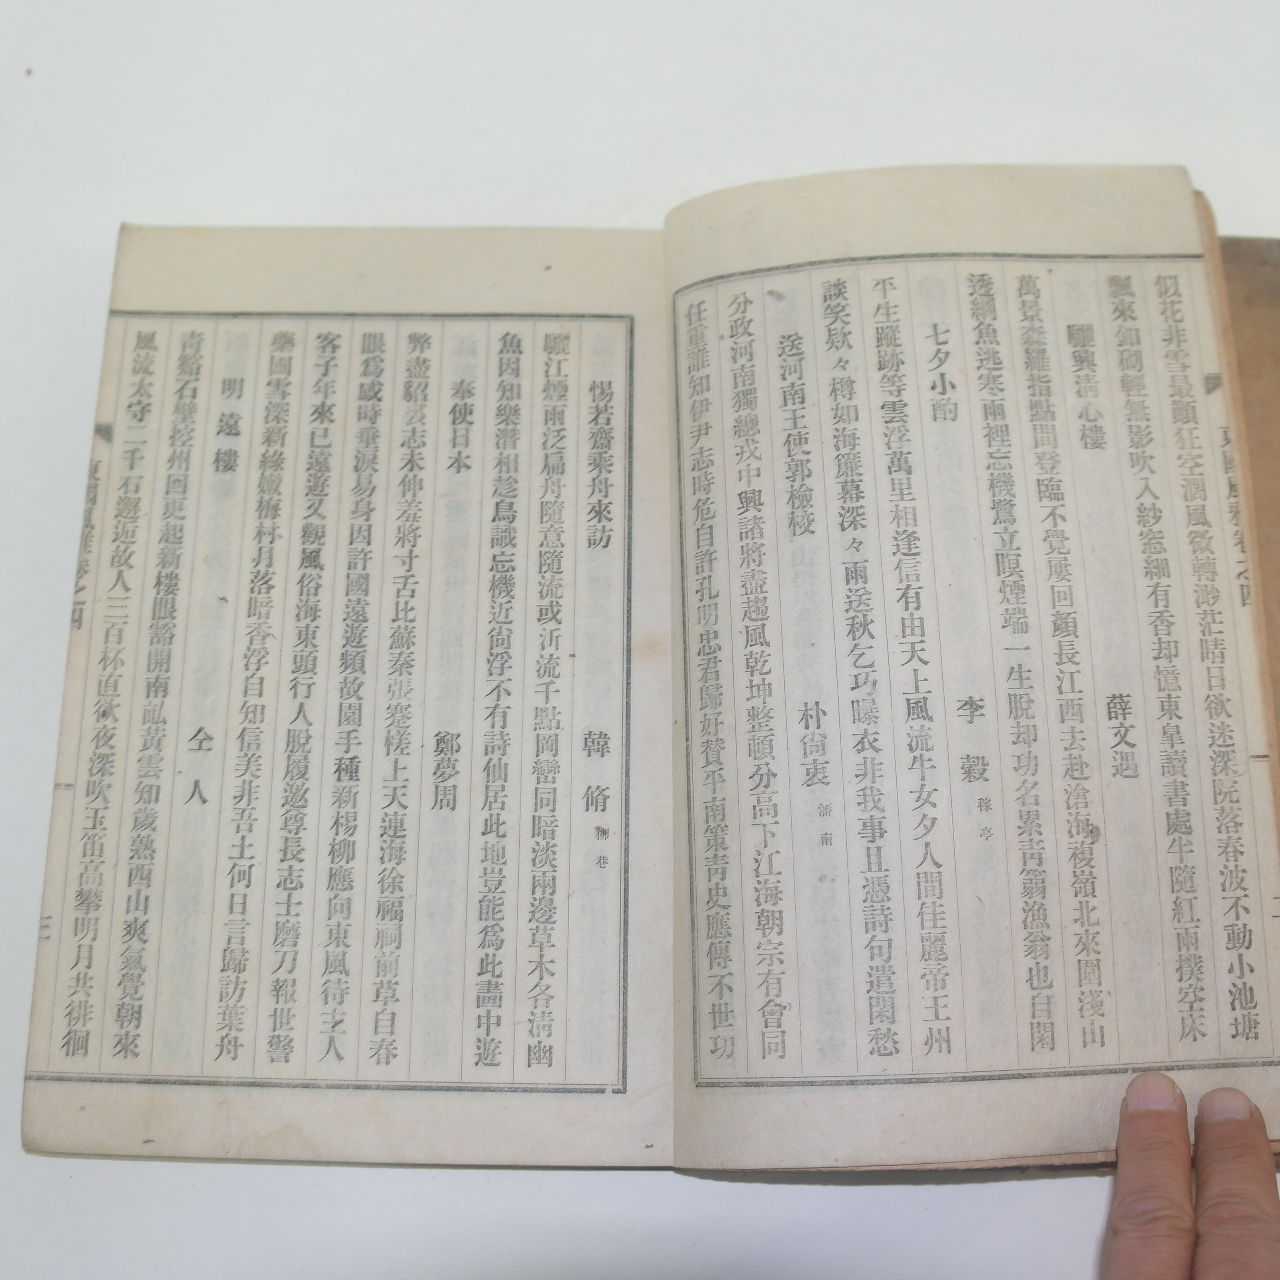 東國風雅卷之四
似花非雪最顚狂空濶風微轉渺茫晴日欲迷深院落春波不動小池塘
飄來卸砌輕無影吹入紗窓細有香却憶東皐讀書處半隨紅雨撲空床
驪興淸心樓
薛文遇
萬景森羅指點間登臨不覺屢回顔長江西去赴滄海複嶺北來圍淺山
透綱魚逃寒雨裡忘機鷺立暝煙端一生脫却功名累靑篛漁翁也自閑
七夕小酌
李穀 稼亭
平生蹤跡等雲浮萬里相逢信有由天上風流牛女夕人間佳麗帝王州
談笑欵々樽如海簾幕深々雨送秋乞巧曝衣非我事且憑詩句遣閑愁
送河南王使郭檢校
朴尙衷 潘南
分政河南獨總戎中興諸將盡趨風乾坤整頓分高下江海朝宗有會同
任重誰知伊尹志時危自許孔明忠君歸好贊平南策靑史應傳不世功
惕若齋乘舟來訪
韓脩 柳巷
驪江煙雨泛扁舟隨意隨流或泝流千點岡巒同暗淡兩邊草木各淸幽
魚因知樂潛相趁鳥識忘機近尙浮不有詩仙居此地豈能爲此畵中遊
奉使日本
鄭夢周
弊盡貂裘志未伸羞將寸舌比蘇秦張騫槎上天連海徐福祠前草自春
眼爲感時垂淚易身因許國遠遊頻故園手種新楊柳應向東風待主人
客子年來已遠遊又觀風俗海東頭行人脫履邀尊長志士磨刀報世讐
藥圃雪深新綠嫩梅村月落暗香浮自知信美非吾土何日言歸訪葉舟
明遠樓
仝人
靑谿石壁控州回更起新樓眼豁開南畝黃雲知歲熟西山爽氣覺朝來
風流太守二千石邂逅故人三百杯直欲夜深吹玉笛高攀明月共徘徊
東國風雅卷之四
三